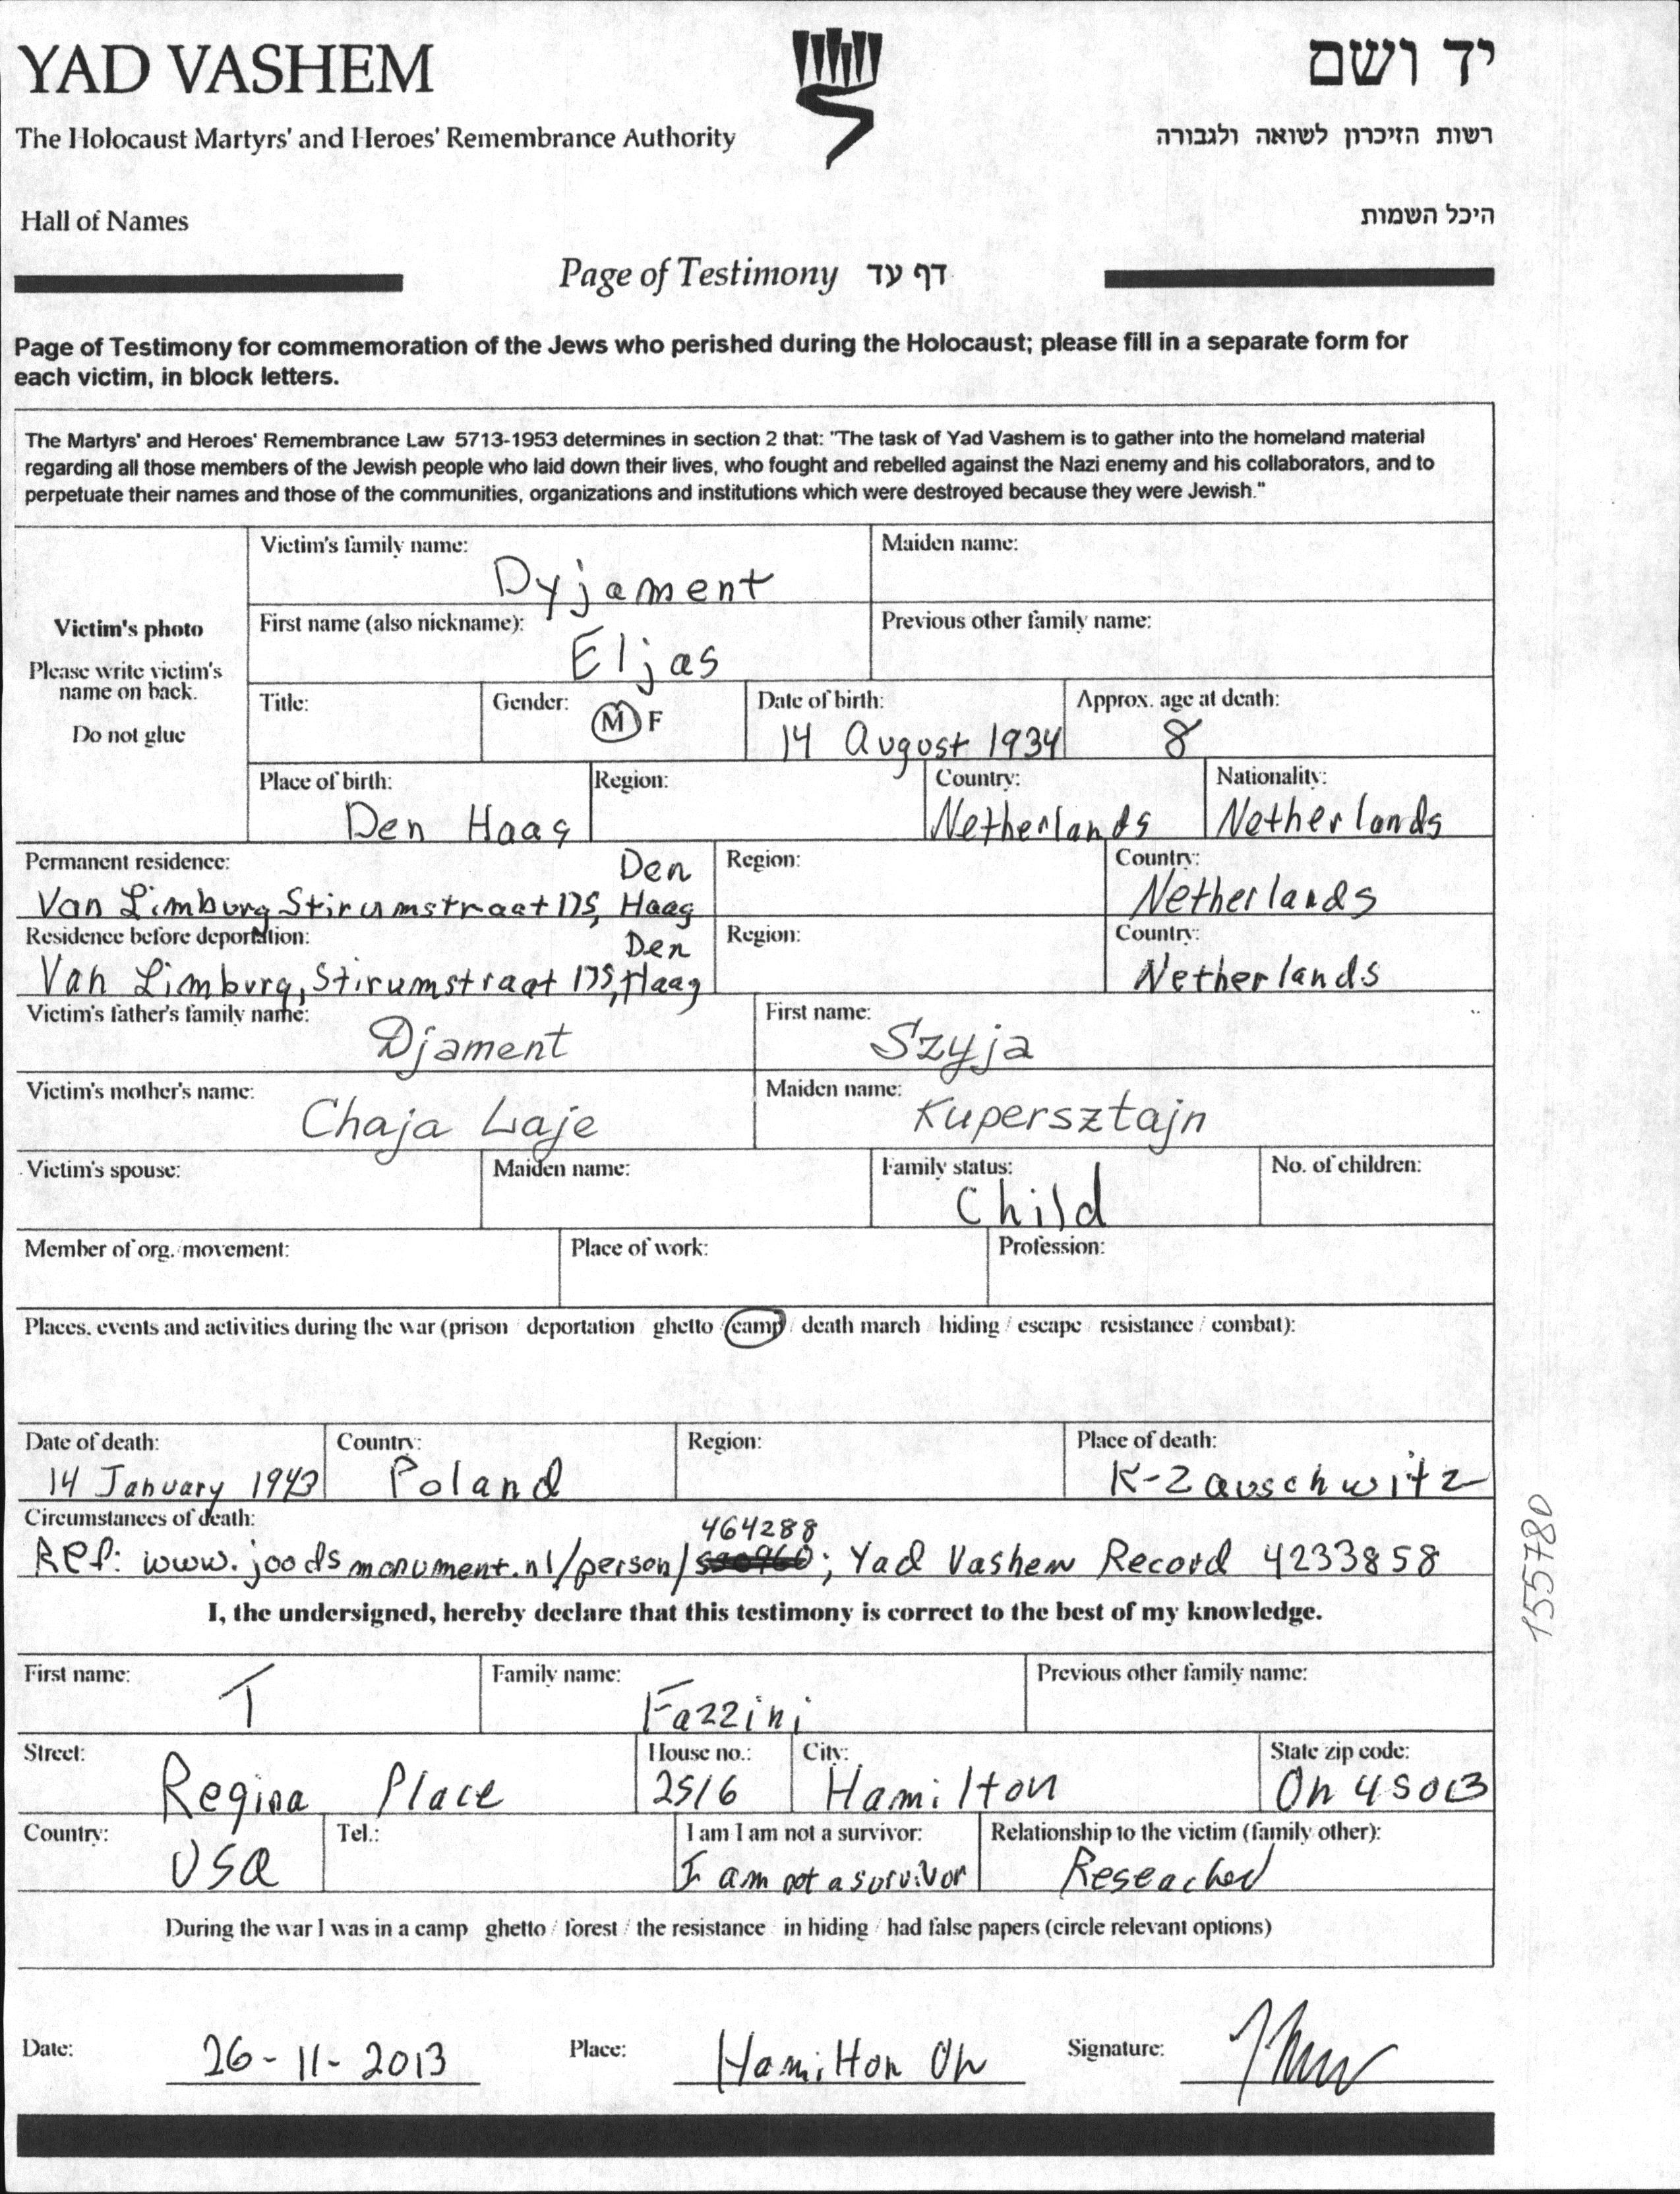 YAD VASHEM
יד ושם
The Holocaust Martyrs' and Heroes' Remembrance Authority
רשות הזיכרון לשואה ולגבורה
Hall of Names
היכל השמות
Page of Testimony דף עד
Page of Testimony for commemoration of the Jews who perished during the Holocaust; please fill in a separate form for
each victim, in block letters.
The Martyrs' and Heroes' Remembrance Law 5713-1953 determines in section 2 that: "The task of Yad Vashem is to gather into the homeland material
regarding all those members of the Jewish people who laid down their lives, who fought and rebelled against the Nazi enemy and his collaborators, and to
perpetuate their names and those of the communities, organizations and institutions which were destroyed because they were Jewish."
Victim's photo
Please write victim's
name on back.
Do not glue
Victim's family name: Maiden name:
Dyjament
First name (also nickname): Previous other family name:
Eljas
Title: Gender: M F Date of birth: Approx. age at death:
14 August 1934 8
Place of birth: Region: Country: Nationality:
Den Haag Netherlands Netherlands
Permanent residence: Den Region: Country:
Van Limburg Stirumstraat 175, Haag Netherlands
Residence before deportation: Den Region: Country:
Van Limburg, Stirumstraat 175, Haag Netherlands
Victim's father's family name: First name:
Djament Szyja
Victim's mother's name: Maiden name:
Chaja Laje Kupersztajn
Victim's spouse: Maiden name: Family status: No. of children:
Child
Member of org. movement: Place of work: Profession:
Places, events and activities during the war (prison deportation ghetto / camp / death march hiding / escape resistance / combat):
Date of death: Country: Region: Place of death:
14 January 1943 Poland K-Z Auschwitz
Circumstances of death:
464288
Ref: www.joodsmonument.nl/person/ ; Yad Vashem Record 4233858
I, the undersigned, hereby declare that this testimony is correct to the best of my knowledge.
First name: Family name: Previous other family name:
T Fazzini
Street: House no.: City: State zip code:
Regina Place 2516 Hamilton Oh 45013
Country: Tel.: I am I am not a survivor: Relationship to the victim (family other):
USA I am not a survivor Reseacher
During the war I was in a camp ghetto / forest / the resistance in hiding / had false papers (circle relevant options)
Date: 26-11-2013 Place: Hamilton Oh Signature:
155780